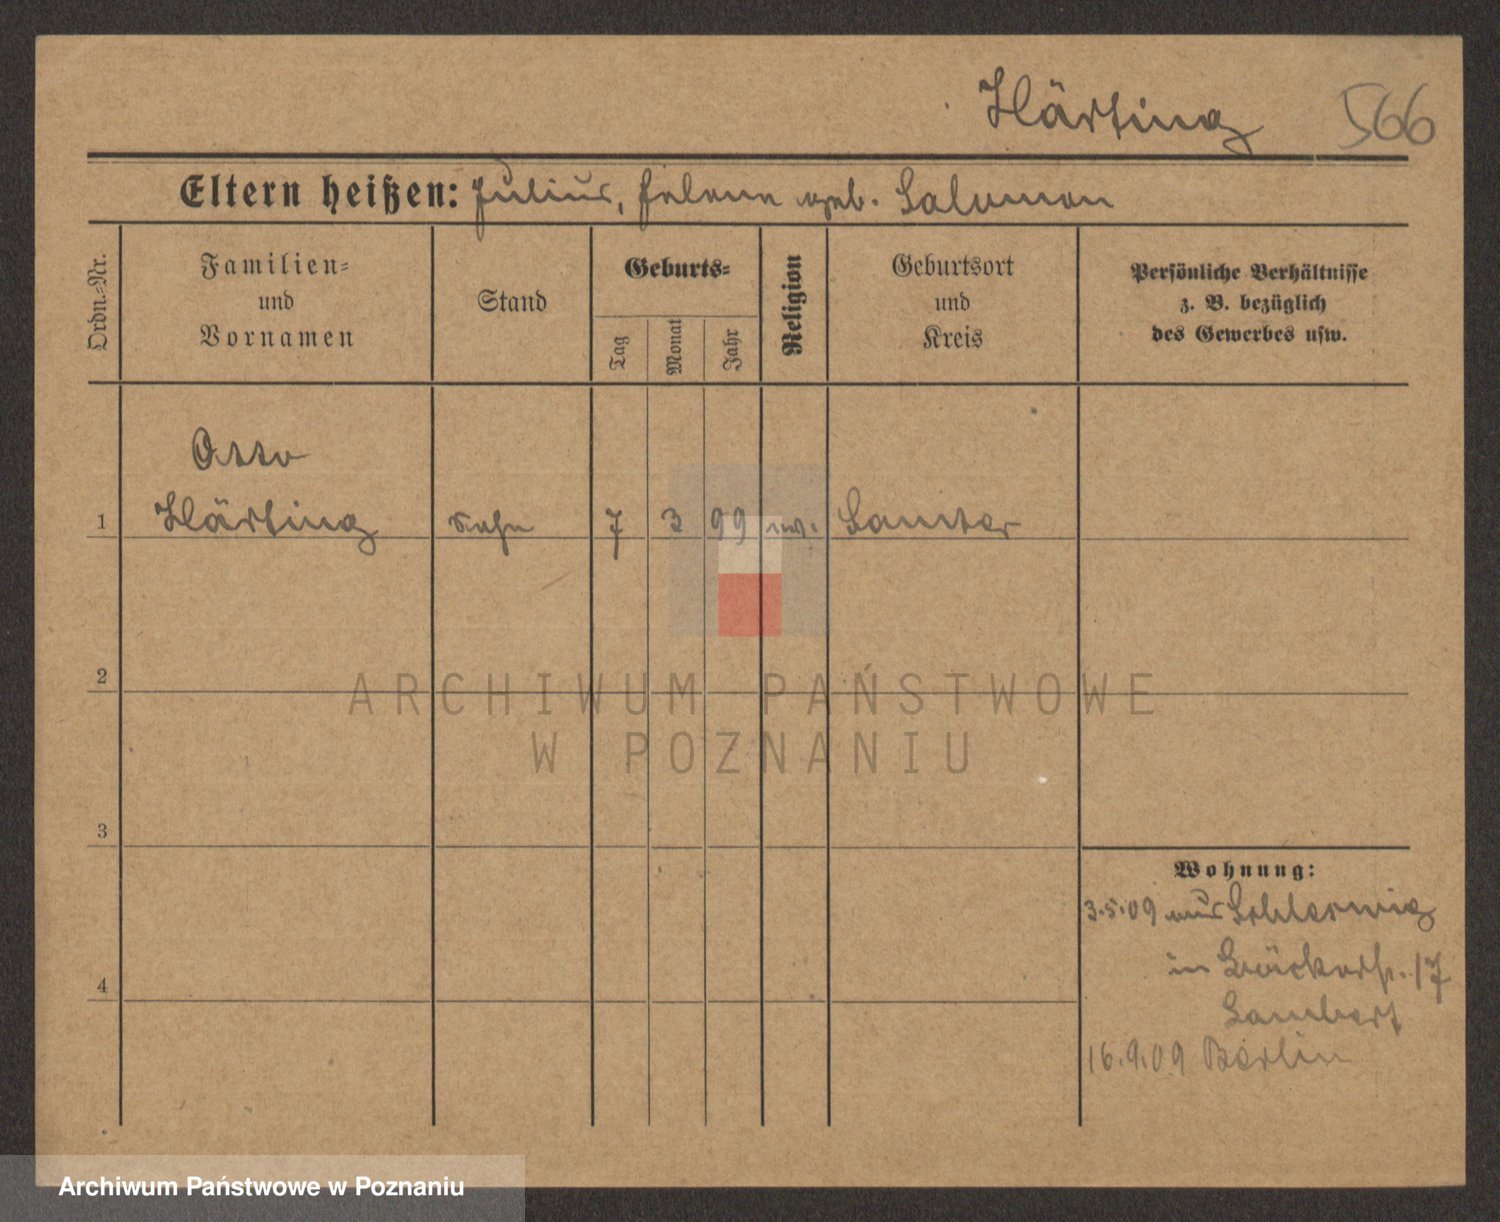 Härting 566
Eltern heißen: Julius, Helene geb. Salomon
Ordn.-Nr.
Familien-
und
Vornamen
Stand
Geburts-
Tag
Monat
Jahr
Religion
Geburtsort
und
Kreis
Persönliche Verhältnisse
z. B. bezüglich
des Gewerbes usw.
Otto
1 Härting Sohn 7 3 99 Samter
2
3
4
Wohnung:
3.5.09 aus Schleswig
in 17
16.9.09 Berlin
ARCHIWUM PAŃSTWOWE
W POZNANIU
Archiwum Państwowe w Poznaniu